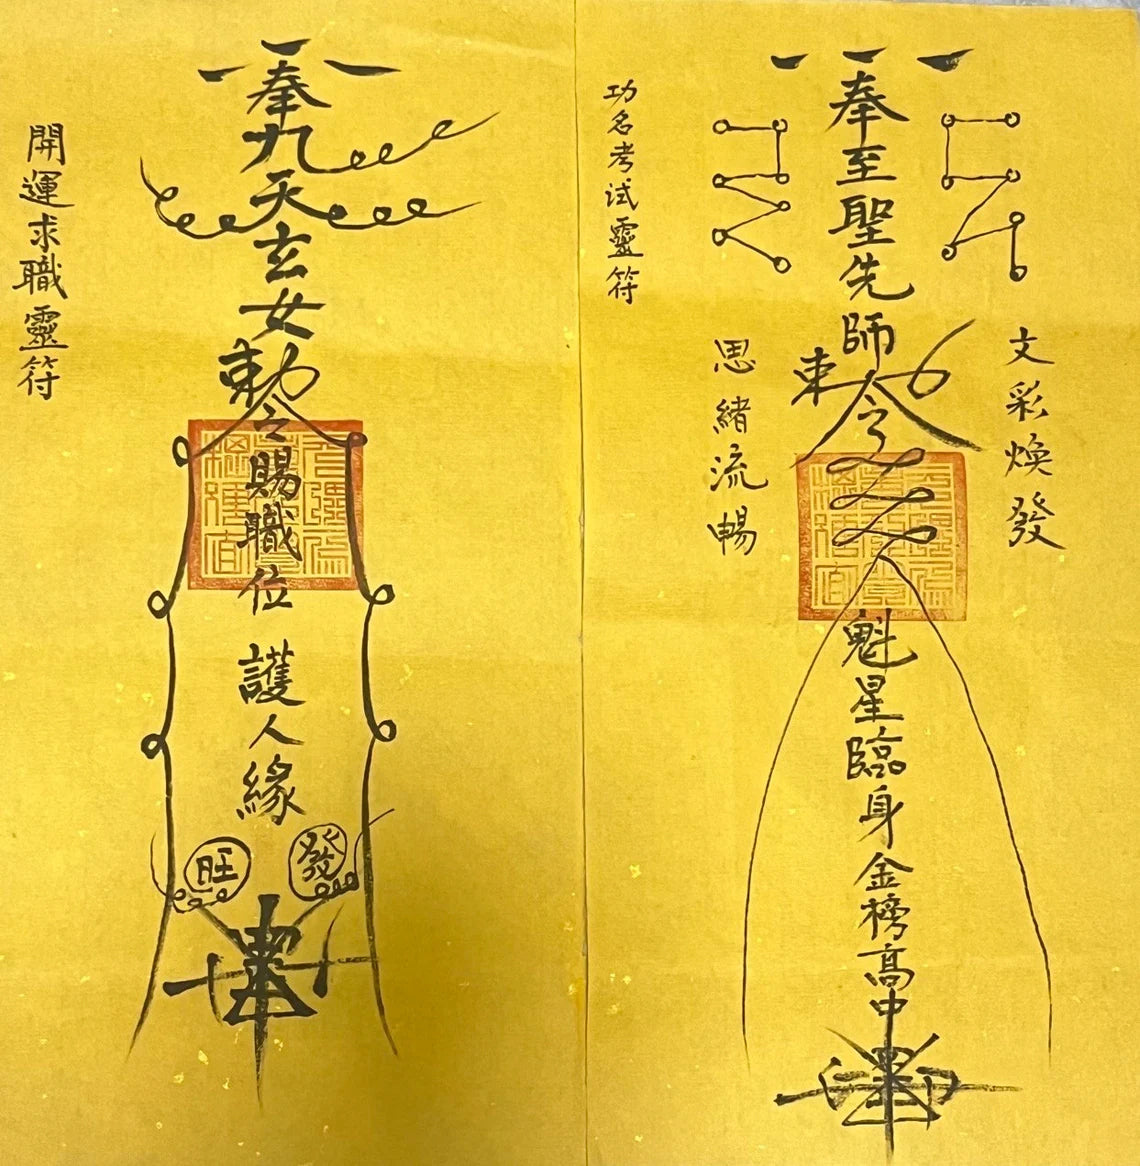 開運求職靈符
奉九天玄女
勅令
賜職位護人緣
旺
發
功名考試靈符
奉至聖先師
勅令
文彩煥發
思緒流暢
魁星臨身金榜高中